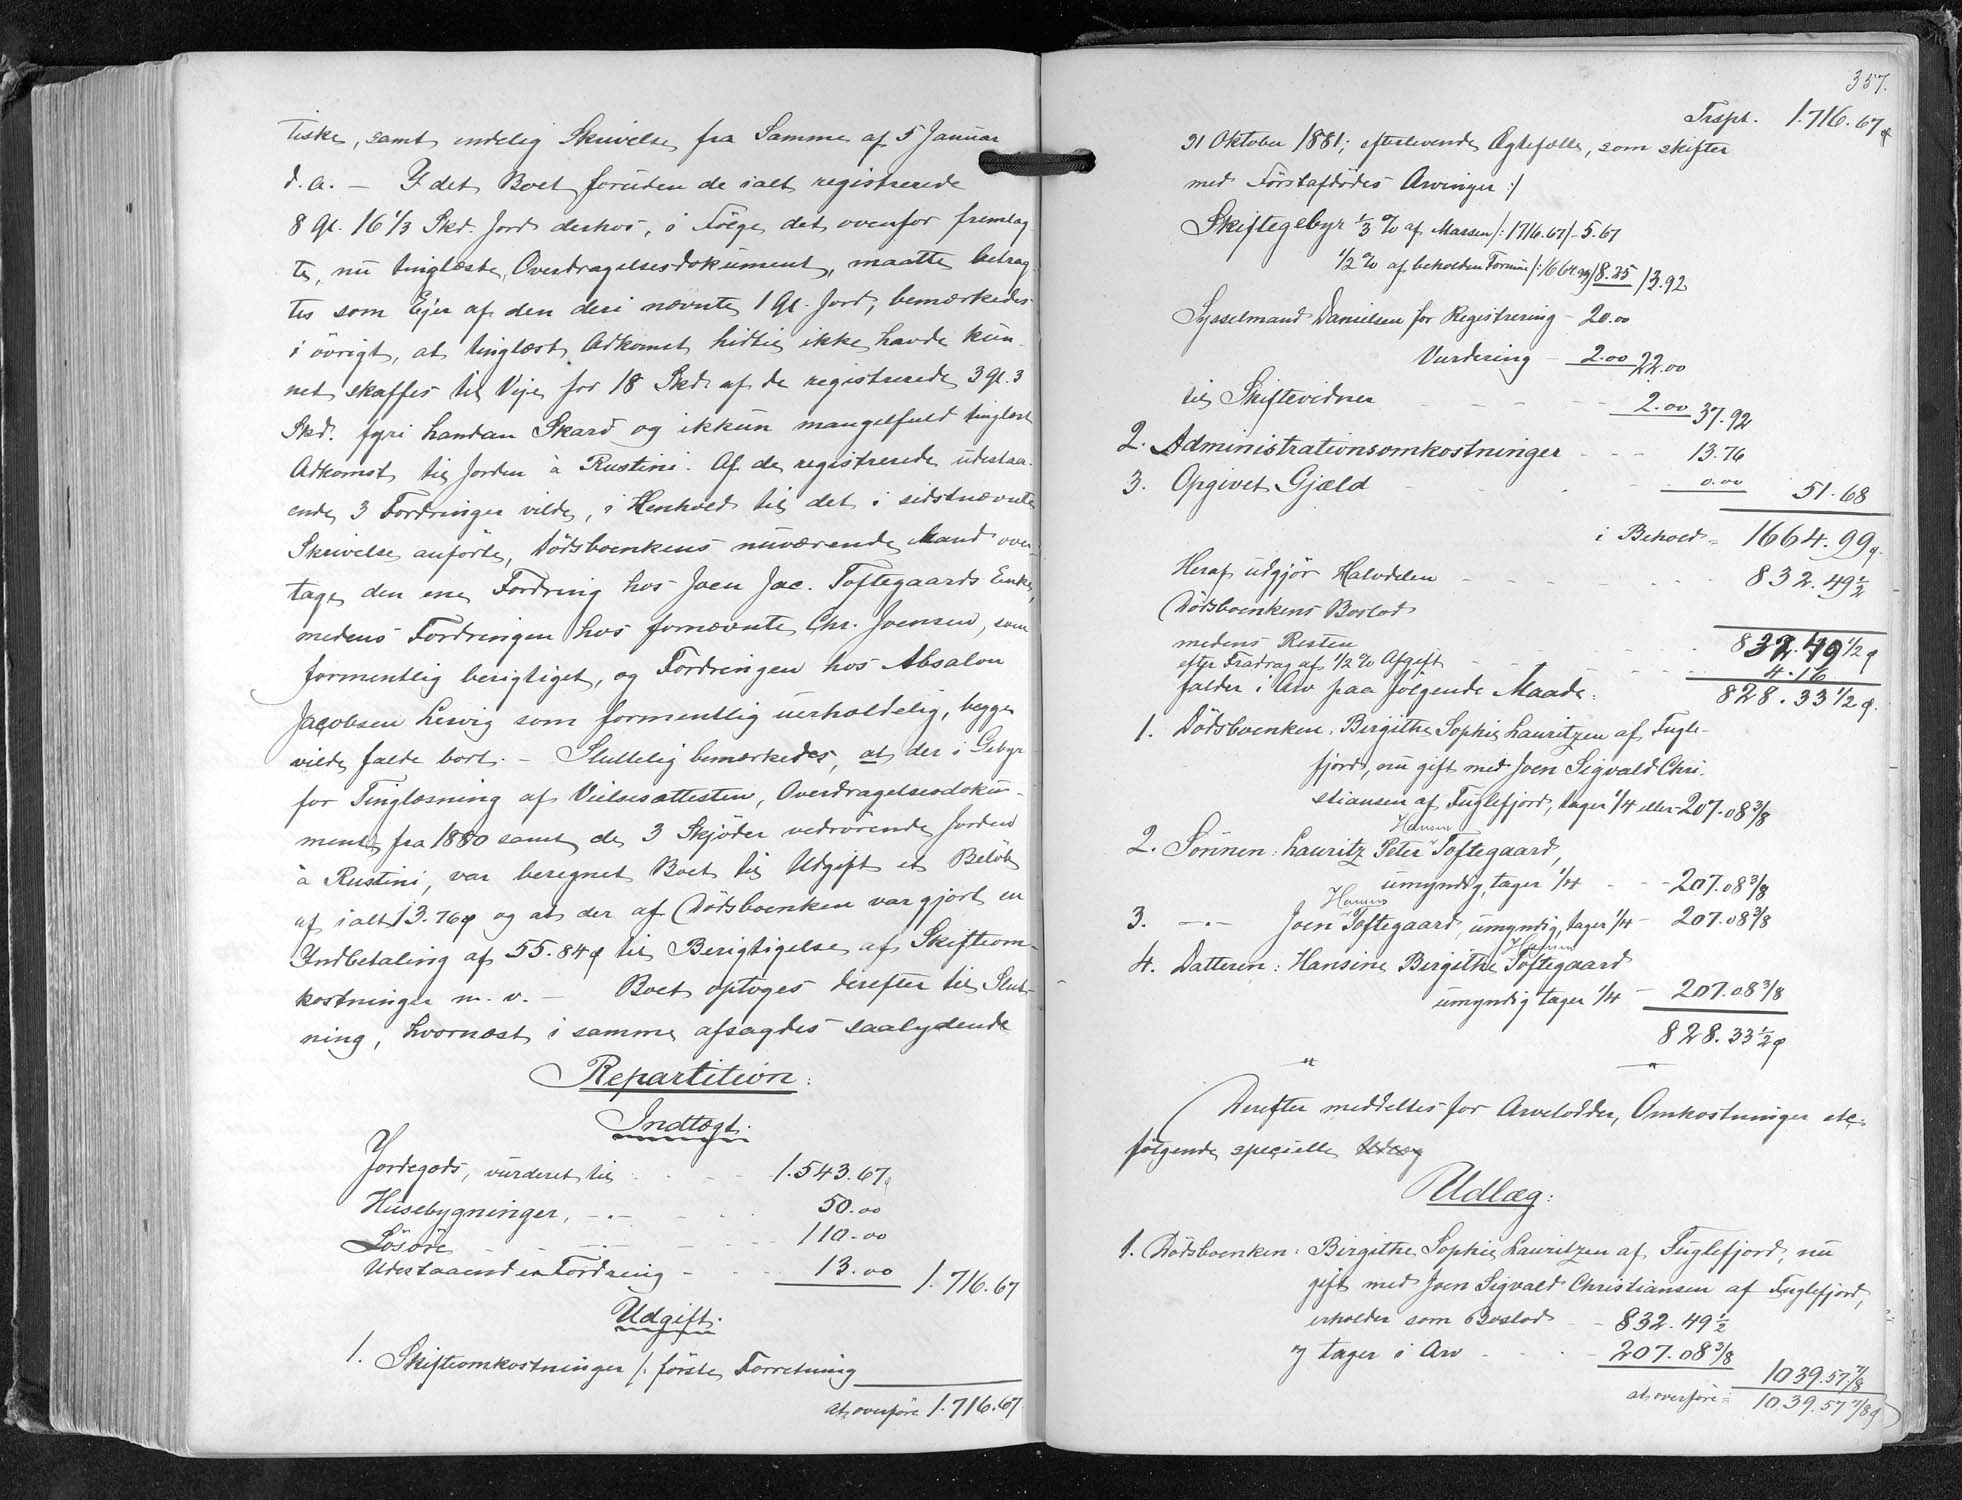 tiske, samt endelig Skrivelse fra Samme af 5 Januar
d. A. – I det Boet foruden de ialt registrerede
8 Gl. 16 1/3 Skd. Jord derhos, i Følge det ovenfor fremlag
te, nu tinglæste, Overdragelsesdokument, maatte betrag-
tes som Ejer af den deri nævnte 1 Gl. Jord, bemærkedes
i øvrigt, at tinglæst Adkomst hidtil ikke havde kun-
net skaffes til Veje for 18 Skd. af de registrerede 3 Gl. 3
Skd. fyri handan Skard og ikkun mangelfuld tinglæst
Adkomst til Jorden à Rustini. Af de registrerede udestaa-
ende 3 Fordringer vilde, i Henhold til det i sidstnævnte
Skrivelse anførte, Dödsboenkens nuværende Mand over-
tage den ene Fordring hos Joen Jac. Toftegaards Enke,
medens Fordringen hos fornævnte Chr. Joensen, som
formentlig berigtiget, og Fordringen hos Absalon
Jacobsen Lervig som formentlig uerholdelig, begge
vilde falde bort. – Sluttelig bemærkedes, at der i Gebyr
for Tinglæsning af Vielsesattesten, Overdragelsesdoku-
mentet fra 1880 samt de 3 Skjöder vedrörende Jorden
à Rustini, var beregnet Boet til Udgift et Beløb
af ialt 13.76 ø og at der af Dödsboenken var gjort en
Indbetaling af 55.84 ø til Berigtigelse af Skifteom-
kostninger m. v. – Boet optoges derefter til Slut-
ning, hvornæst i samme afsagdes saalydende
Repartition:
Indtægt:
Jordegods, vurderet til – 1.543.67 ø
Husebygninger, –.– 50.00
Løsøre 110.00
Udestaaende Fordring – 13.00 1.716.67
Udgift:
1. Skifteomkostninger /: første Forretning
at overføre 1.716.67
357.
Trspt. 1.716.67 ø
31 Oktober 1881; efterlevende Ægtefælle, som skifter
med Förstafdödes Arvinger :/
Skiftegebyr 1/3 % af Massen /: 1716.67/ – 5.67
1/2 % af beholden Formue /: 1664.99/ 8.25 13.92
Sysselmand Danielsen for Registrering – 20.00
Vurdering – 2.00 22.00
til Skiftevidner – – – 2.00 37.92
2. Administrationsomkostninger – – – 13.76
3. Opgivet Gjæld – – 0.00 51.68
i Behold = 1664.99 ø
Heraf udgjør Halvdelen – – – 832.49 1/2
Dödsboenkens Boslod
medens Resten 832.49 1/2 ø
efter Fradrag af 1/2 % Afgift – – 4.16
falder i Arv paa følgende Maade: 828.33 1/2 ø.
1. Dödsboenken: Birgithe Sophie Lauritzen af Fugle-
fjord, nu gift med Joen Sigvald Chri-
stiansen af Fuglefjord, tager 1/4 eller – 207.08 3/8
Hansen
2. Sönnen: Lauritz Peter Toftegaard,
umyndig, tager 1/4 – – 207.08 3/8
Hansen
3. –.– Joen Toftegaard, umyndig, tager 1/4 – 207.08 3/8
Hansen
4. Datteren: Hansine Birgithe Toftegaard
umyndig tager 1/4 – 207.08 3/8
828.33 1/2 ø
" "
Derefter meddeltes for Arvelodder, Omkostninger etc.
følgende specielle Udlæg
Udlæg:
1. Dödsboenken: Birgithe Sophie Lauritzen af Fuglefjord, nu
gift med Joen Sigvald Christiansen af Fuglefjord,
erholder som Boslod – – 832.49 1/2
og tager i Arv – – 207.08 3/8 1039.57 7/8
at overføre = 1039.57 7/8 ø